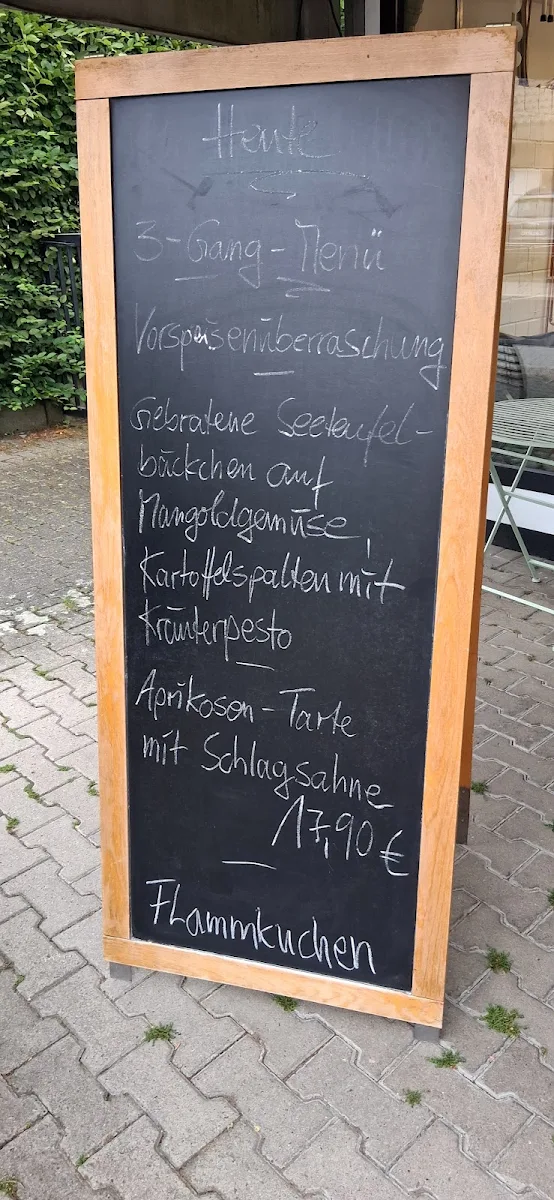 Heute
3-Gang-Menü
Vorspeisenüberraschung
Gebratene Seeteufel-
bäckchen auf
Mangoldgemüse,
Kartoffelspalten mit
Kräuterpesto
Aprikosen-Tarte
mit Schlagsahne
17,90 €
Flammkuchen